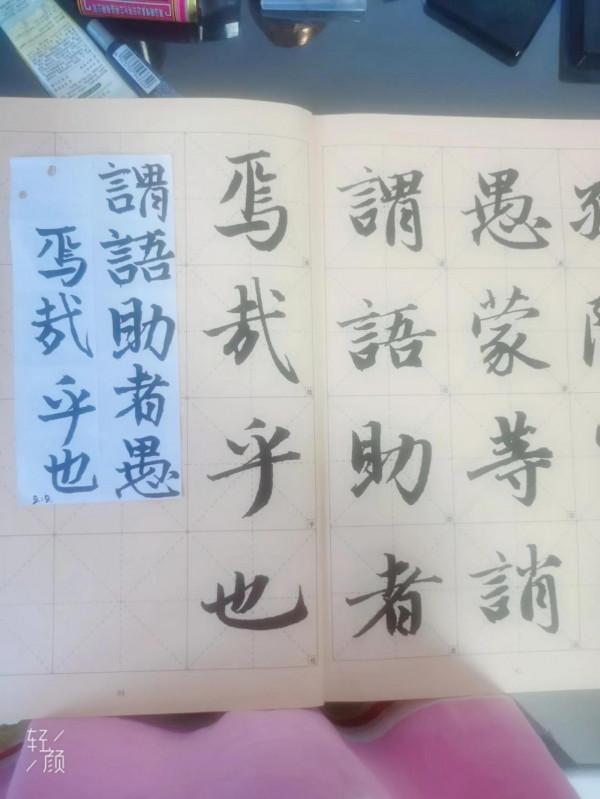 愚蒙等誚
謂語助者
焉哉乎也
謂語助者愚
焉哉乎也
轻颜